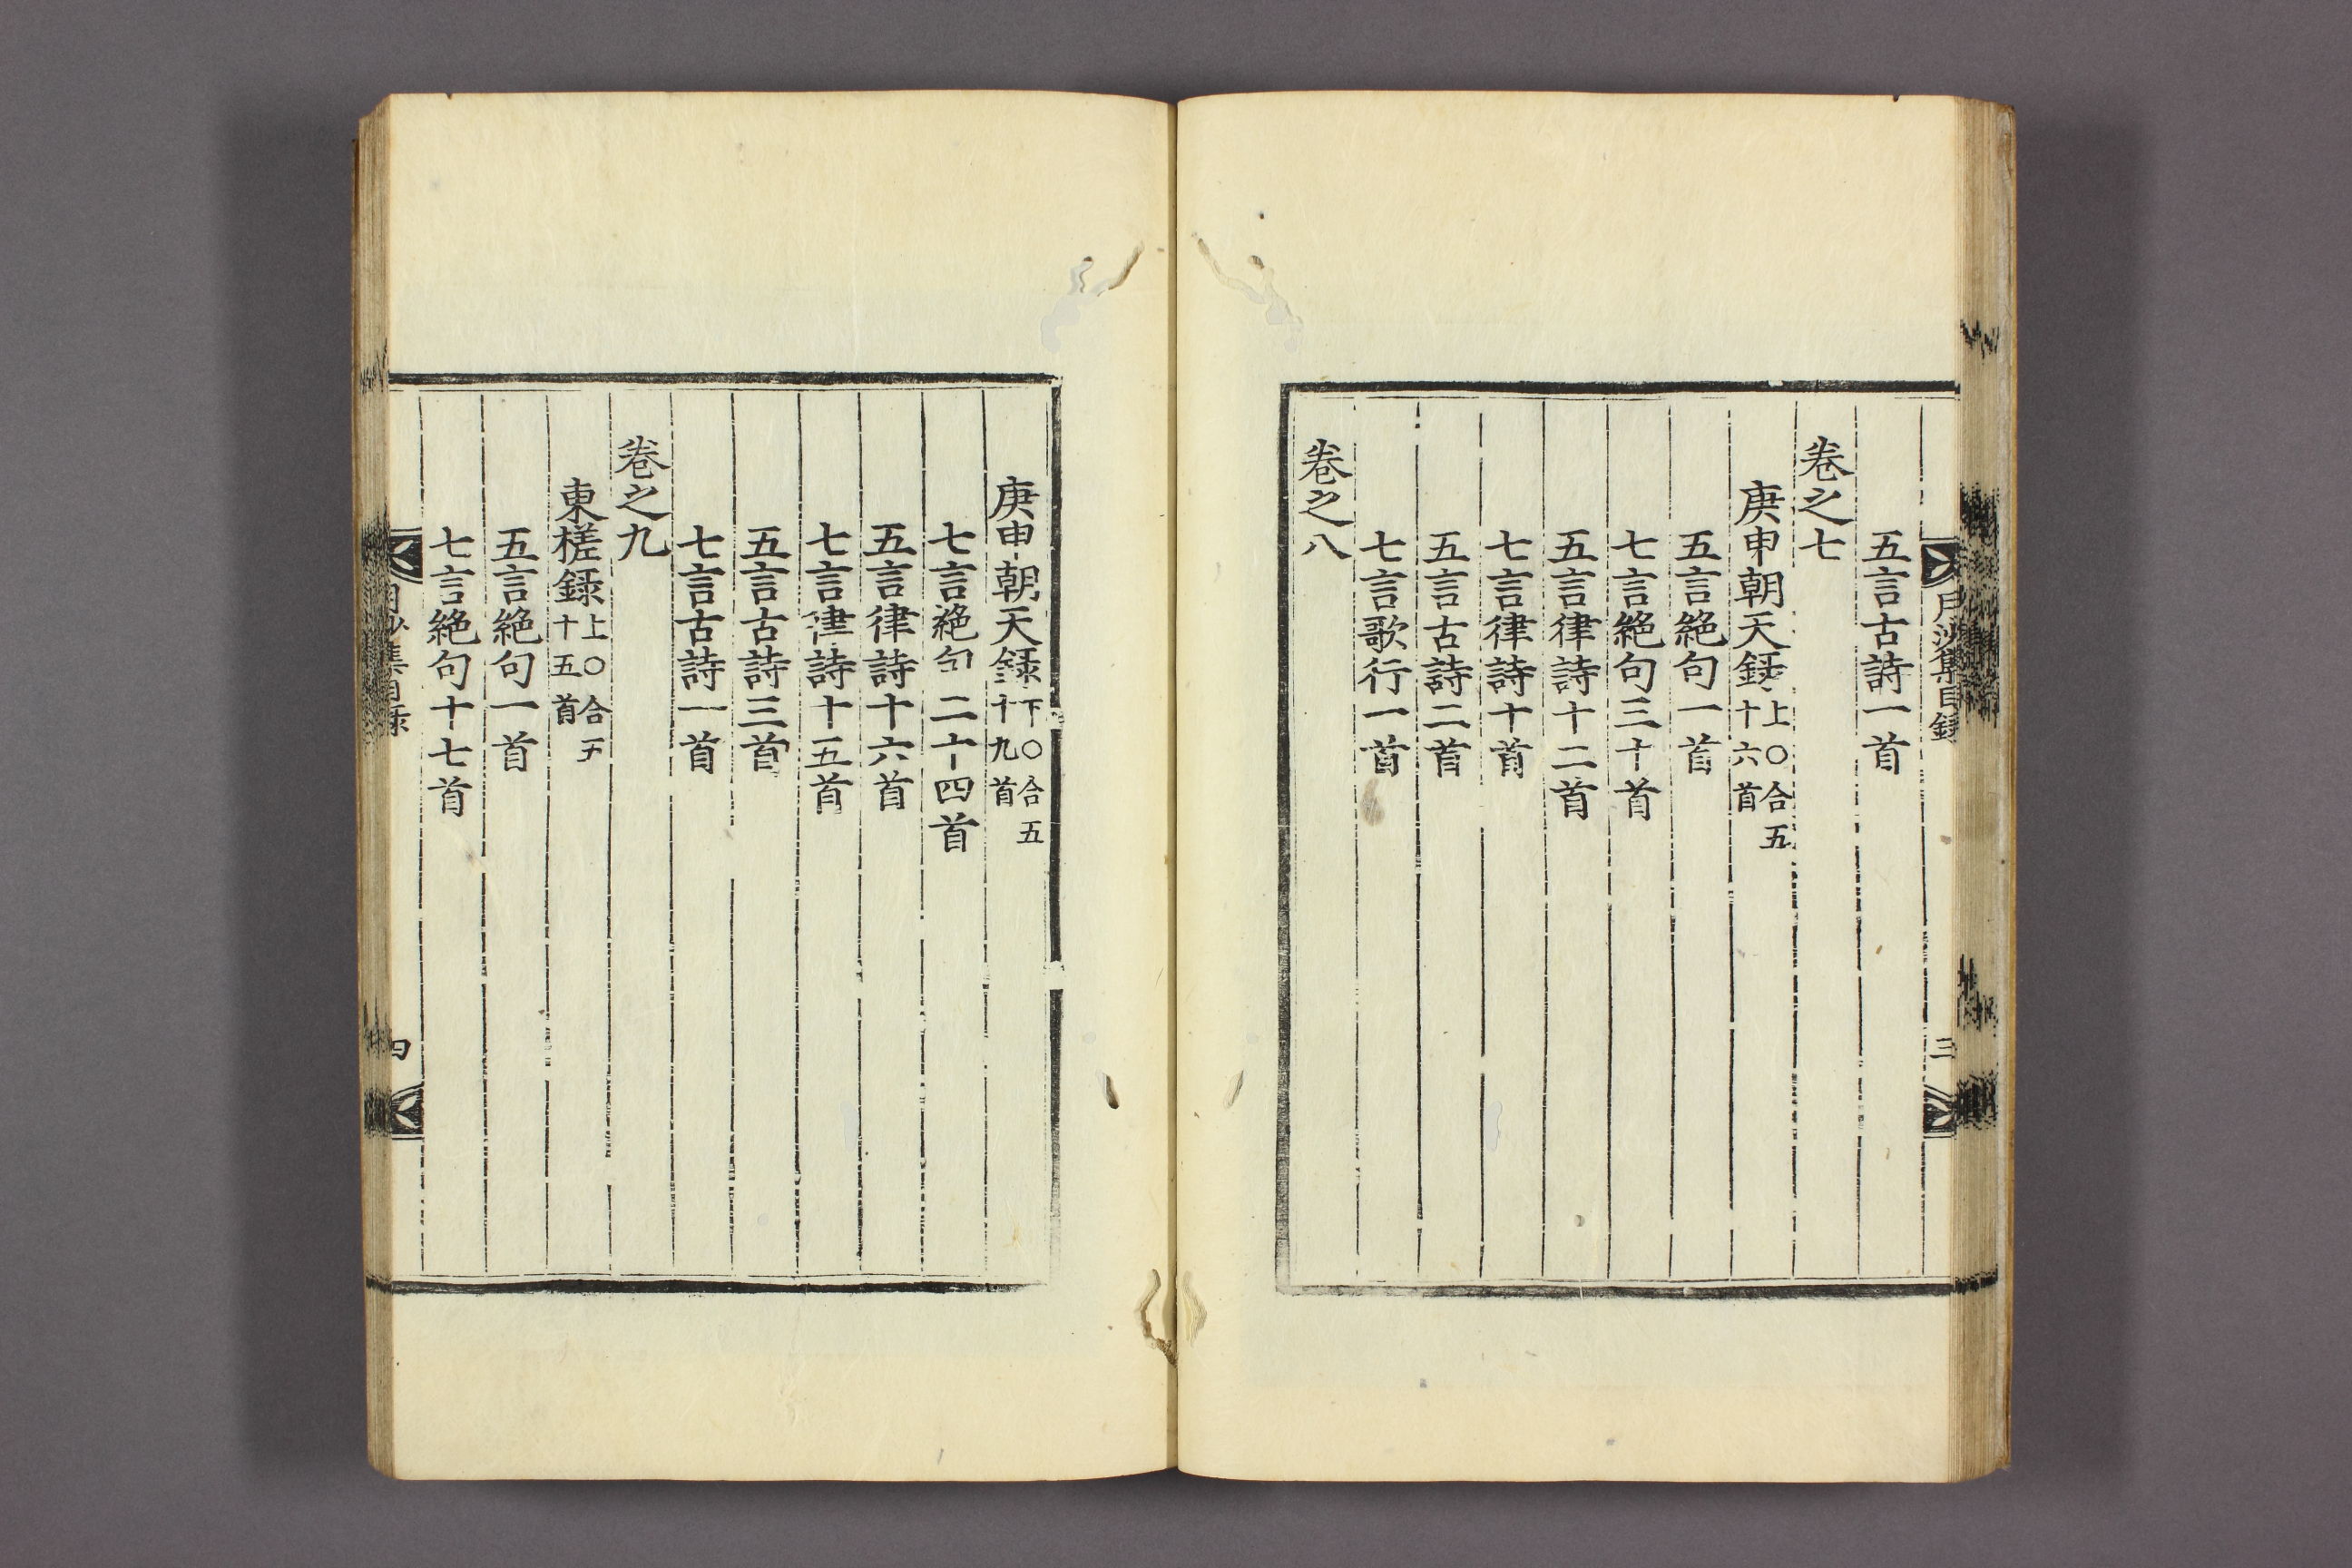 月沙集目録
三
五言古詩一首
卷之七
庚申朝天録上〇合五十六首
五言絶句一首
七言絶句三十首
五言律詩十二首
七言律詩十首
五言古詩二首
七言歌行一首
卷之八
庚申朝天録下〇合五十九首
七言絶句二十四首
五言律詩十六首
七言律詩十五首
五言古詩三首
七言古詩一首
卷之九
東槎録上〇合五十五首
五言絶句一首
七言絶句十七首
月沙集目録
四